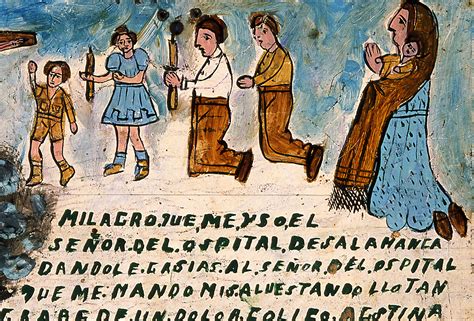 MILAGRO.QUE,ME,YSO,EL
SEÑOR.DEL.OSPITAL,DESALAMANCA
DANDOLE.GASIAS.AL.SEÑOR.DEL.OSPITAL
QUE ME.MANDO MISALUESTANDO LLOTAN
GRABE DE.UN.DOLOR.COLICO.AGSTINA